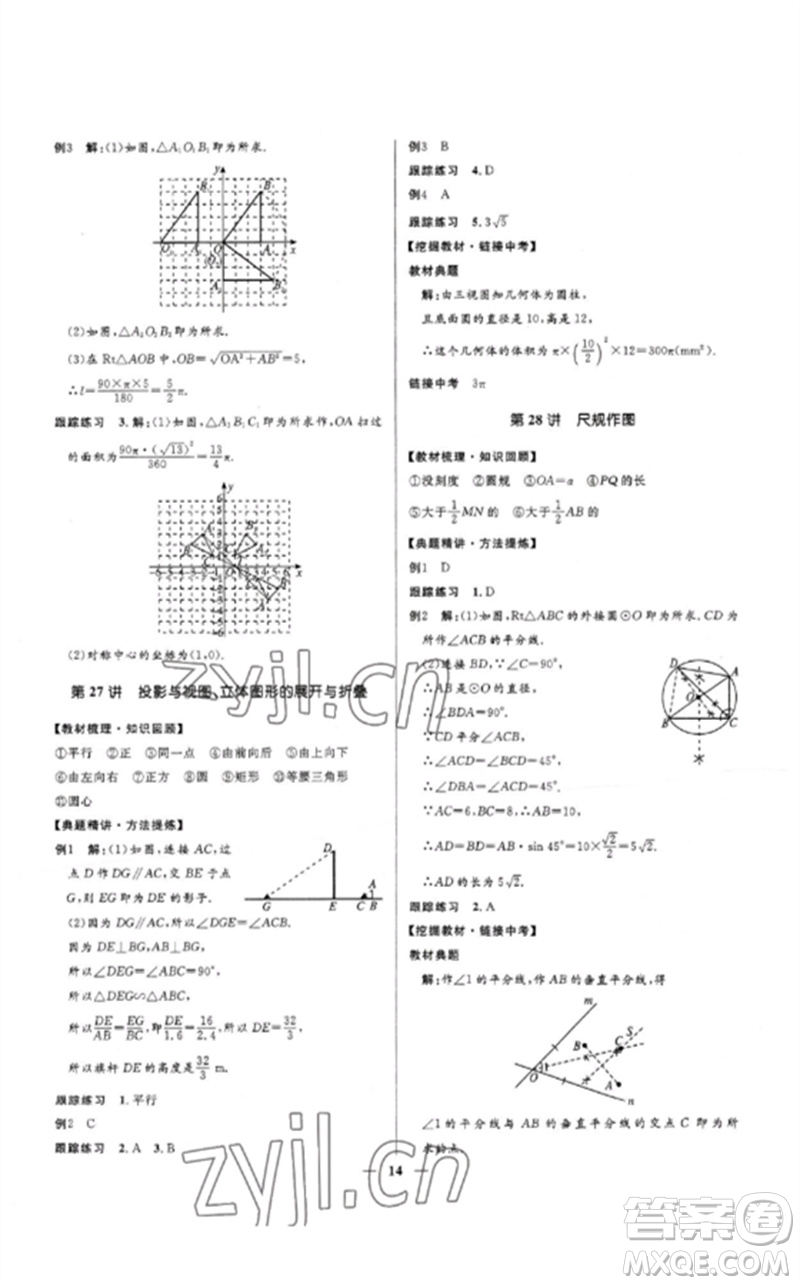 例3 解:(1)如图,△A₁O₁B₁即为所求.
(2)如图,△A₂O₂B₂即为所求.
(3)在Rt△AOB中,OB=√(OA²+AB²)=5,
∴l=(90×π×5)/180=(5/2)π.
跟踪练习 3.解:(1)如图,△A₁B₁C₁即为所求作,OA扫过
的面积为(90π·(√13)²)/360=(13/4)π.
(2)对称中心的坐标为(1,0)
第27讲 投影与视图、立体图形的展开与折叠
【教材梳理·知识回顾】
①平行 ②正 ③同一点 ④由前向后 ⑤由上向下
⑥由左向右 ⑦正方 ⑧圆 ⑨矩形 ⑩等腰三角形
⑪圆心
【典题精讲·方法提练】
例1 解:(1)如图,连接AC,过
点D作DG∥AC,交BE于点
G,则EG即为DE的影子.
(2)因为DG∥AC,所以∠DGE=∠ACB.
因为DE⊥BG,AB⊥BG,
所以∠DEG=∠ABC=90°,
所以△DEG∽△ABC,
所以DE/AB=EG/BC,即DE/1.6=16/2.4,所以DE=32/3,
所以旗杆DE的高度为32/3 m.
跟踪练习 1.平行
例2 C
跟踪练习 2.A 3.B
例3 B
跟踪练习 4.D
例4 A
跟踪练习 5.3√5
【挖掘教材·链接中考】
教材典题
解:由三视图知几何体为圆柱,
且底面圆的直径是10,高是12,
∴这个几何体的体积为π×(10/2)²×12=300π(mm³)
链接中考 3π
第28讲 尺规作图
【教材梳理·知识回顾】
①没刻度 ②圆规 ③OA=a ④PQ的长
⑤大于1/2MN的 ⑥大于1/2AB的
【典题精讲·方法提练】
例1 D
跟踪练习 1.D
例2 解:(1)如图,Rt△ABC的外接圆⊙O即为所求.CD为
所作∠ACB的平分线.
(2)连接BD,∵∠C=90°,
∴AB为⊙O的直径.
∴∠BDA=90°.
∵CD平分∠ACB,
∴∠ACD=∠BCD=45°.
∴∠DBA=∠ACD=45°.
∵AC=6,BC=8,∴AB=10.
∴AD=BD=AB·sin 45°=10×√2/2=5√2.
∴AD的长为5√2.
跟踪练习 2.A
【挖掘教材·链接中考】
教材典题
解:作∠1的平分线,作AB的垂直平分线,得
∠1的平分线与AB的垂直平分线的交点C即为所
求站点.
14
zyjl.cn
zyjl.cn
答案圈
MXQE.COM